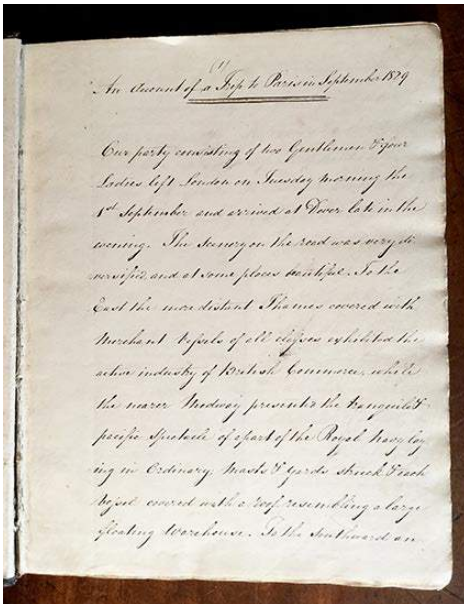 (1)
An Account of a Trip to Paris in September 1829
Our party consisting of two Gentlemen & four
Ladies left London on Tuesday morning the
1st September and arrived at Dover late in the
evening. The scenery on the road was very di
versified and at some places beautiful. To the
East the more distant Thames covered with
Merchant Vessels of all classes exhibited the
active industry of British Commerce, while
the nearer Medway presented the tranquil &
pacific Spectacle of a part of the Royal Navy lay
ing in Ordinary; Masts & Yards struck & each
Vessel covered with a roof resembling a large
floating Warehouse. To the Southward an